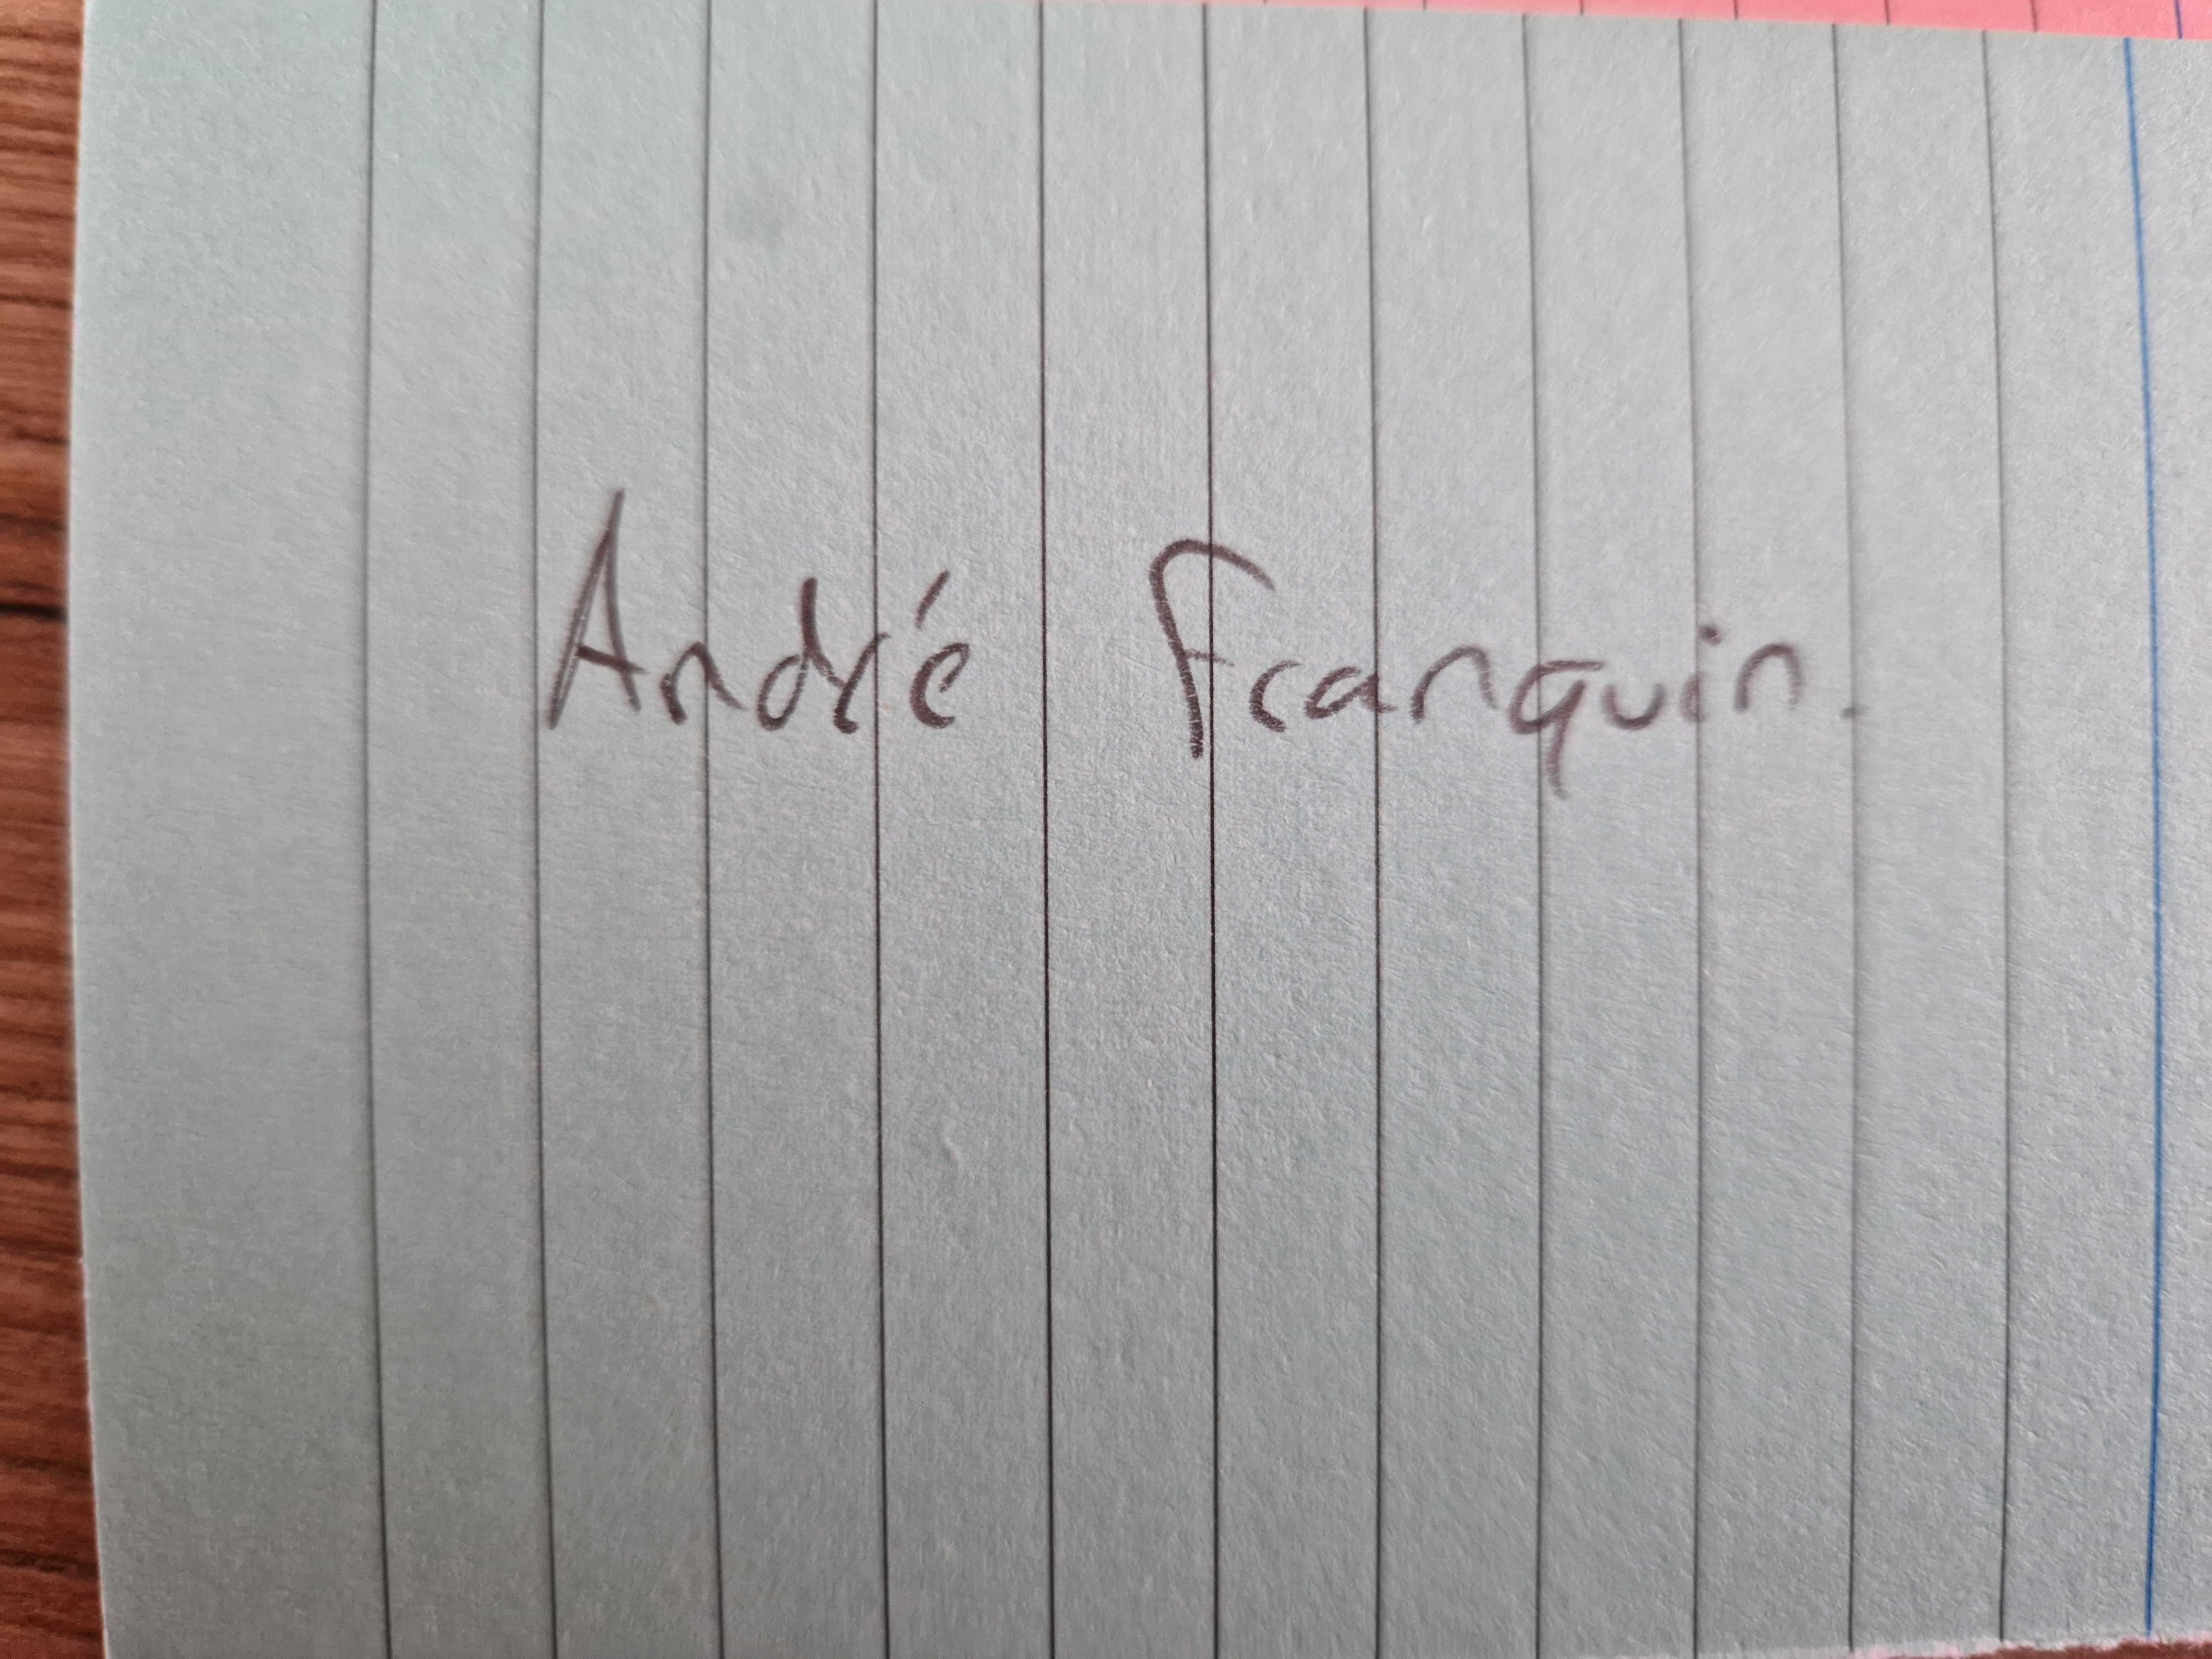 André Franquin.